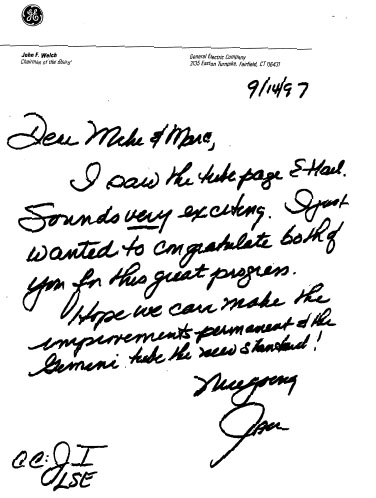 GE
John F. Welch
Chairman of the Board
General Electric Company
3135 Easton Turnpike, Fairfield, CT 06431
9/14/97
Dear Mike & Marc,
I saw the tube page E-Mail.
Sounds very exciting. I just
wanted to congratulate both of
you for this great progress.
Hope we can make the
improvements permanent & the
Gemini tube the new standard!
Jack
CC: JI
LSE